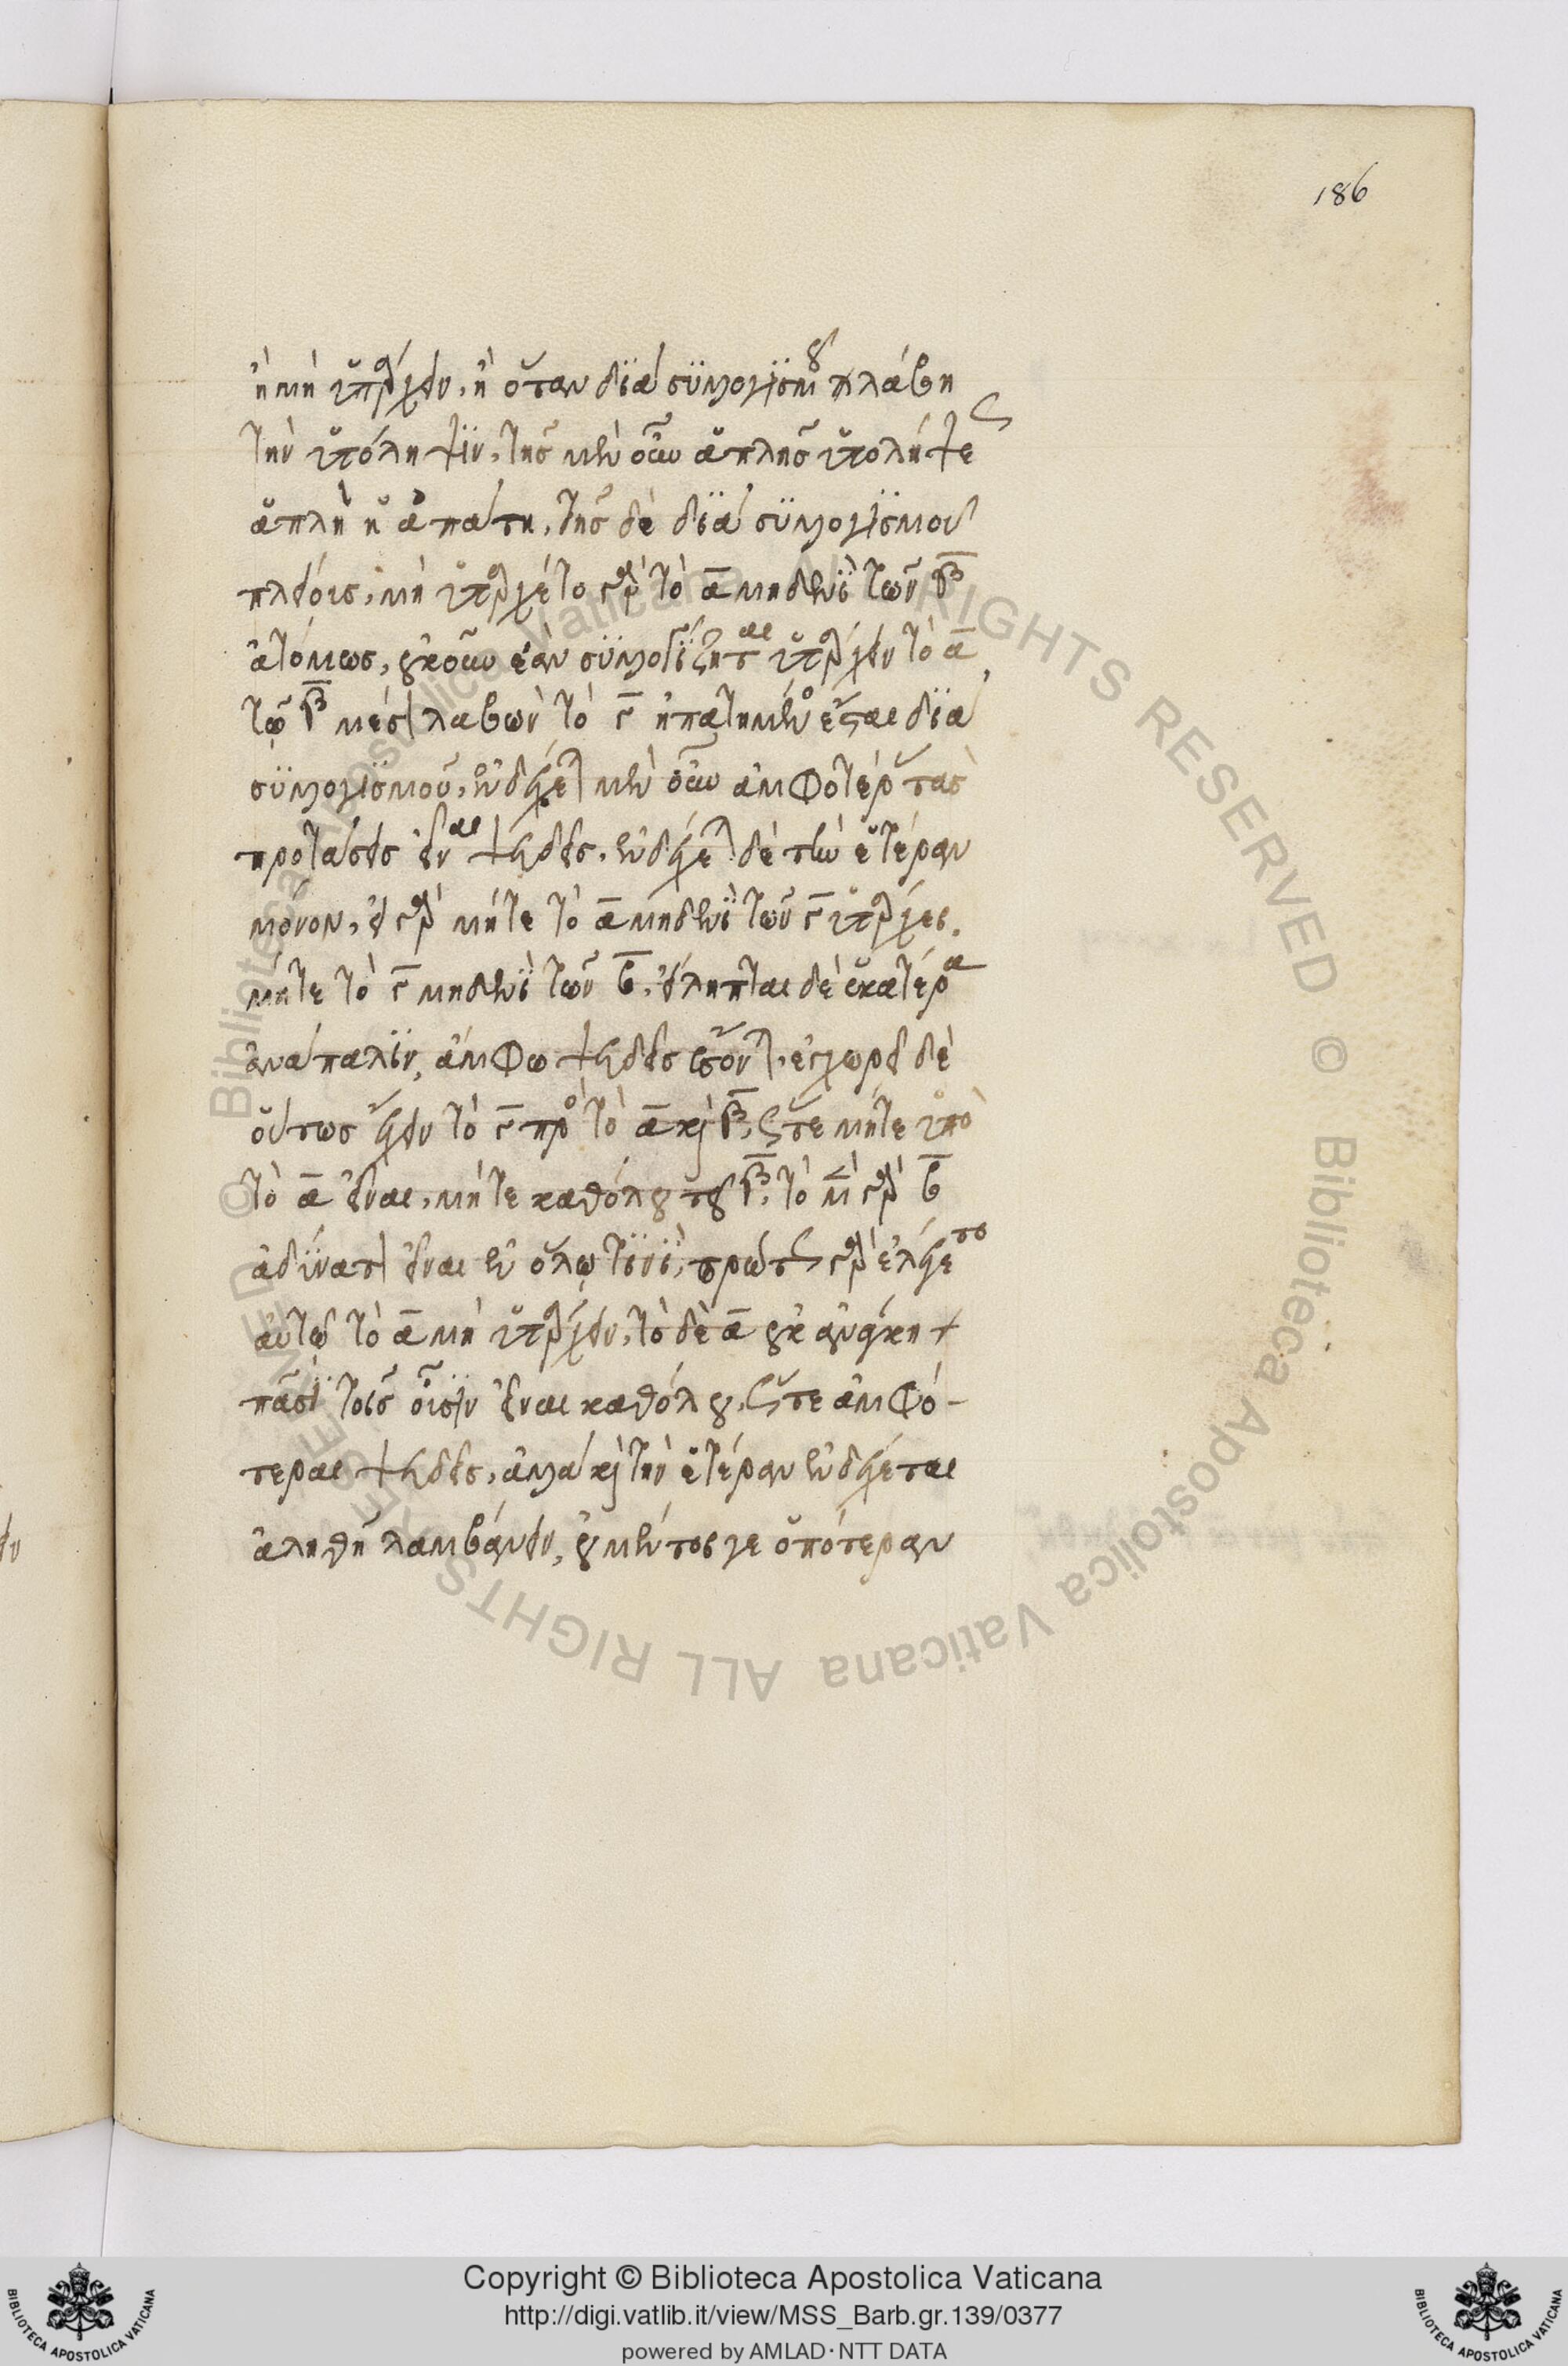 186
ἢ μὴ ὑπάρχειν, ἢ ὅταν διὰ συλλογισμοῦ λάβη
τὴν ὑπόληψιν, τῆς μὲν οὖν ἁπλῆς ὑπολήψεως
ἁπλῆ ἡ ἀπάτη, τῆς δὲ διὰ συλλογισμοῦ
πλείους, μὴ ὑπαρχέτω γὰρ τὸ α μηδενὶ τῶν β
ἀτόμως, οὐκοῦν ἐὰν συλλογίζηται ὑπάρχειν τὸ α
τῷ β μέσον λαβὼν τὸ γ ἠπατημένος ἔσται διὰ
συλλογισμοῦ, ἐνδέχεται μὲν οὖν ἀμφοτέρας τὰς
προτάσεις εἶναι ψευδεῖς, ἐνδέχεται δὲ τὴν ἑτέραν
μόνον, εἰ γὰρ μήτε τὸ α μηδενὶ τῶν γ ὑπάρχει,
μήτε τὸ γ μηδενὶ τῶν β, εἴληπται δὲ ἑκατέρα
ἀνάπαλιν, ἄμφω ψευδεῖς ἔσονται, ἐγχωρεῖ δὲ
οὕτως ἔχειν τὸ γ πρὸς τὸ α καὶ β, ὥστε μήτε ὑπὸ
τὸ α εἶναι, μήτε καθόλου τῷ β, τὸ μὲν γὰρ β
ἀδύνατον εἶναι ἐν ὅλῳ τινὶ, πρώτως γὰρ ἐλέγετο
αὐτῷ τὸ α μὴ ὑπάρχειν, τὸ δὲ α οὐκ ἀνάγκη
πᾶσι τοῖς οὖσιν εἶναι καθόλου, ὥστε ἀμφό-
τεραι ψευδεῖς, ἀλλὰ καὶ τὴν ἑτέραν ἐνδέχεται
ἀληθῆ λαμβάνειν, οὐ μέντοι γε ὁποτέραν
Copyright © Biblioteca Apostolica Vaticana
http://digi.vatlib.it/view/MSS_Barb.gr.139/0377
powered by AMLAD·NTT DATA